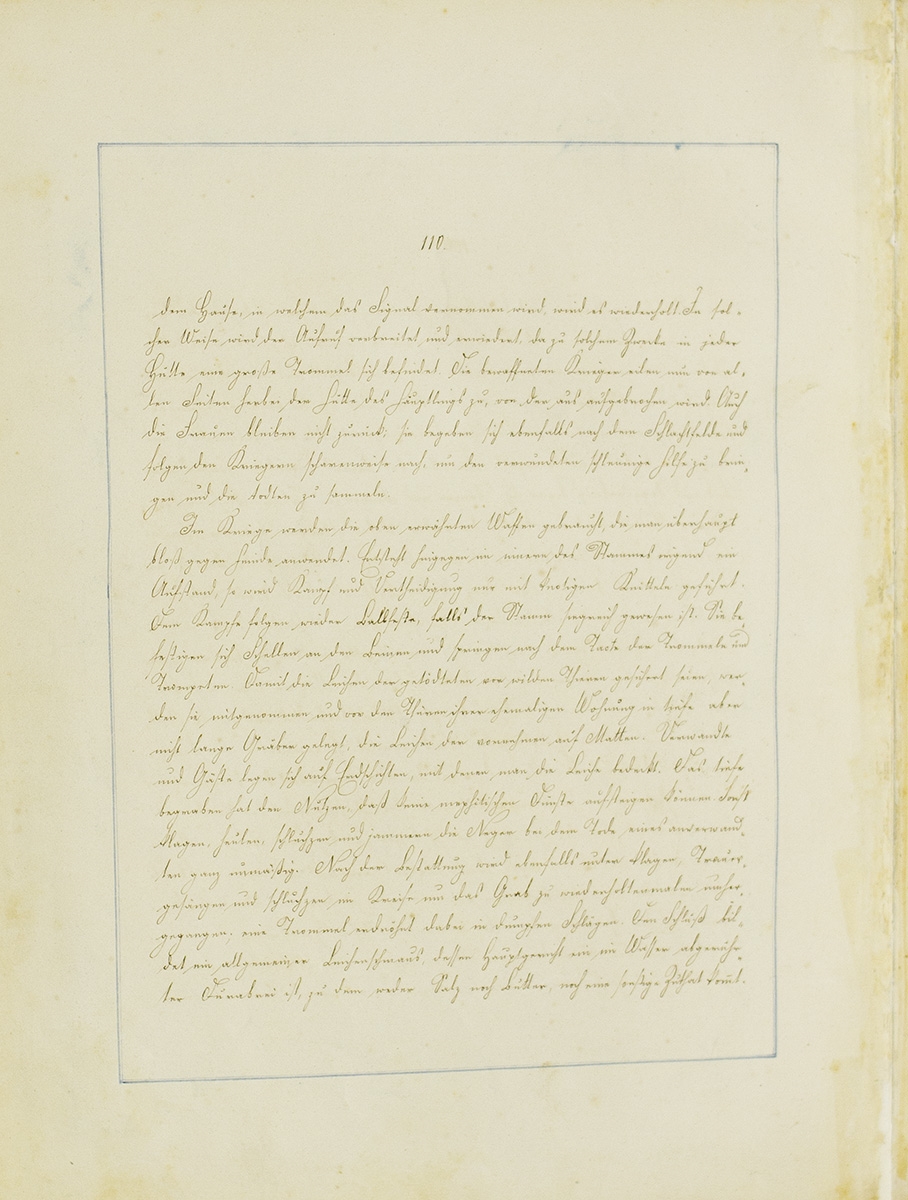 110.
dem Hause, in welchem das Signal vernommen wird, wird es wiederholt. In sol-
cher Weise wird der Aufruf verbreitet und erwiedert, da zu solchem Zwecke in jeder
Hütte eine große Trommel sich befindet. Die bewaffneten Krieger eilen nun von al-
len Seiten herbei der Hütte des Häuptlings zu, von der aus aufgebrochen wird. Auch
die Frauen bleiben nicht zurück; sie begeben sich ebenfalls nach dem Schlachtfelde und
folgen den Kriegern scharenweise nach, um den verwundeten schleunige Hilfe zu brin-
gen und die todten zu sammeln.
Im Kriege werden die oben erwähnten Waffen gebraucht, die man überhaupt
bloß gegen Feinde anwendet. Entsteht hingegen im innern des Stammes irgend ein
Aufstand, so wird Kampf und Vertheidigung nur mit knotigen Knitteln geführt.
Dem Kampfe folgen wieder Ballfeste, falls der Stamm siegreich gewesen ist. Sie be-
festigen sich Schellen an den Beinen und springen nach dem Tacte der Trommeln und
Trompeten. Damit die Leichen der getödteten vor wilden Thieren gesichert seien, wer-
den sie mitgenommen und vor den Thüren ihrer ehemaligen Wohnung in tiefe aber
nicht lange Gräber gelegt, die Leichen der vornehmen auf Matten. Verwandte
und Gäste legen sich auf Erdschichten, mit denen man die Leiche bedeckt. Das tiefe
begraben hat den Nutzen, daß keine mephitischen Dünste aufsteigen können. Sonst
klagen, heulen, schluchzen und jammern die Neger bei dem Tode eines anverwand-
ten ganz unmäßig. Nach der Bestattung wird ebenfalls unter klagen, Trauer-
gesängen und schluchzen im Kreise um das Grab zu wiederholtenmalen umher-
gegangen; eine Trommel erdröhnt dabei in dumpfen Schlägen. Den Schluß bil-
det ein allgemeiner Leichenschmaus, dessen Hauptgericht ein im Wasser abgerühr-
ter Durabrei ist, zu dem weder Salz noch Butter, noch eine sonstige Zuthat kommt.